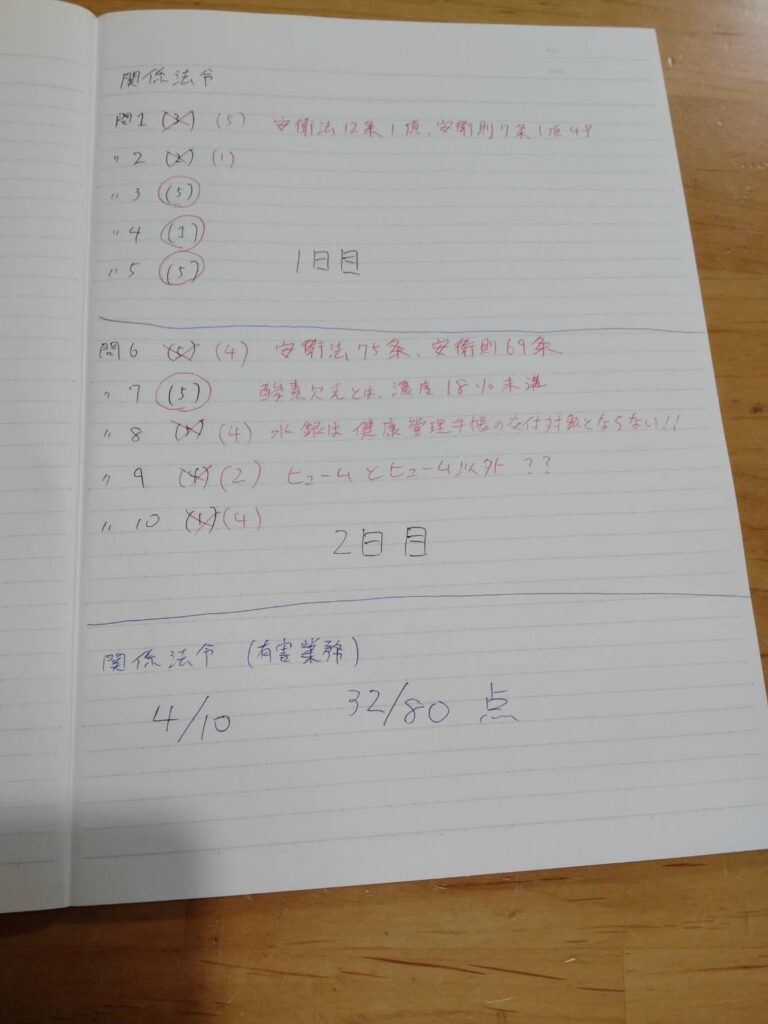 関係法令
問1 (3) (5) 安衛法12条1項、安衛則7条1項4号
〃2 (2) (1)
〃3 (5)
〃4 (1)
〃5 (5)
1日目
問6 (5) (4) 安衛法75条、安衛則69条
〃7 (5) 酸素欠乏とは、濃度18%未満
〃8 (5) (4) 水銀は健康管理手帳の交付対象とならない!!
〃9 (4) (2) ヒュームとヒューム以外??
〃10 (1) (4)
2日目
関係法令 (有害業務)
4/10 32/80点